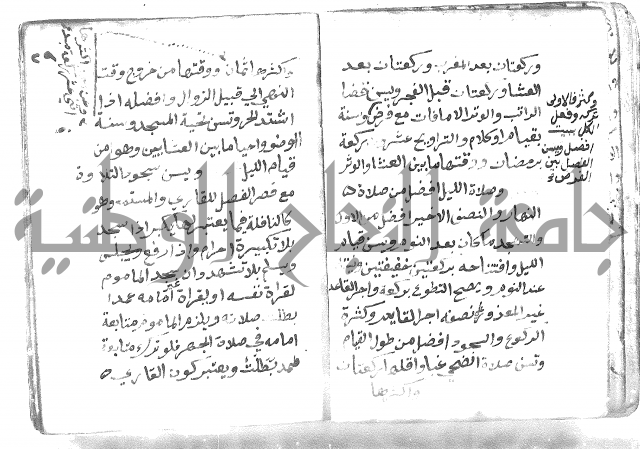 وركعتان بعد المغرب وركعتان بعد
العشا وركعتان قبل الفجر ويسن قضا
الرواتب والوتر الا ما فات مع فرض وسنة
بقيام او كلام والتراويح عشرون ركعة
برمضان ووقتها ما بين العشا والوتر
وصلاة الليل افضل من صلاة
النهار والنصف الاخير افضل من الاول
والتهجد ما كان بعد النوم ويسن قيام
الليل وافتتاحه بركعتين خفيفتين
عند النوم ويصح التطوع بركعة واجر القاعد
غير المعذور نصف اجر القايم وكثرة
الركوع والسجود افضل من طول القيام
وتسن صلاة الضحى غبا واقلها ركعتان
واكثرها
الاولى
وفعل
الكل ببيت
افضل ويسن
الفصل بين
الفرض و
واكثرها ثمان ووقتها من خروج وقت
النهي الى قبيل الزوال وافضله اذا
اشتد الحر وتسن تحية المسجد وسنة
الوضو واحيا ما بين العشايين وهو من
قيام الليل ويسن سجود التلاوة
مع قصر الفصل للقاري والمستمع وهو
كالنافلة فيما يعتبر لها يكبر اذا سجد
بلا تكبيرة احرام واذا رفع ويجلس
ويسلم بلا تشهد وان سجد الماموم
لقراة نفسه او لقراة غير امامه عمدا
بطلت صلاته ويلزم الماموم متابعة
امامه في صلاة الجهر فلو ترك متابعة
عمدا بطلت ويعتبر كون القاري
جامعة النجاح الوطنية